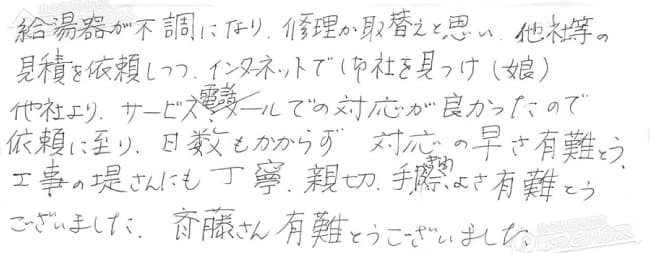 給湯器が不調になり、修理か取替えと思い、他社等の
見積を依頼しつつ、インターネットで御社を見つけ(娘)
他社より、サービス、電話メールでの対応が良かったので
依頼に至り、日数もかからず 対応の早さ有難とう、
工事の堤さんにも丁寧、親切、手際きわよさ有難とう
ございました、斉藤さん有難とうございました、